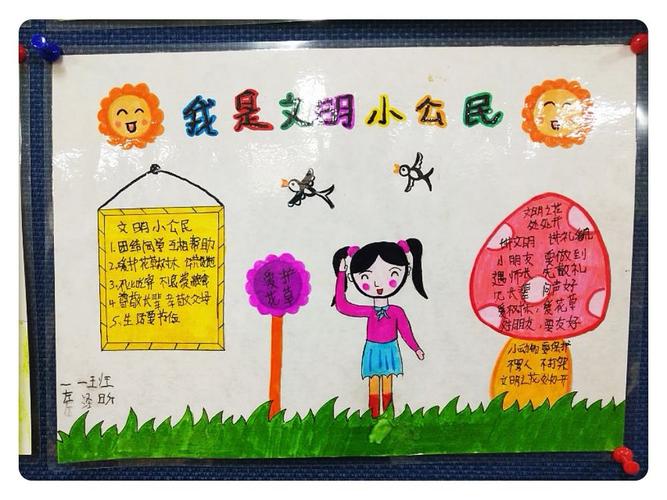 我是文明小公民
文明小公民
1.团结同学 互相帮助
2.爱护花草树木
3.不 吃零
4.尊敬长辈 孝敬父母
5.生活要节俭
爱护
花草
文明之花
处处开
讲文明 讲礼貌
小朋友 要做到
遇师长 先敬礼
见长辈 问声好
爱树木 爱花草
对朋友 要友好
小动物 要保护
不骂人 不打架
文明之花处处开
一班